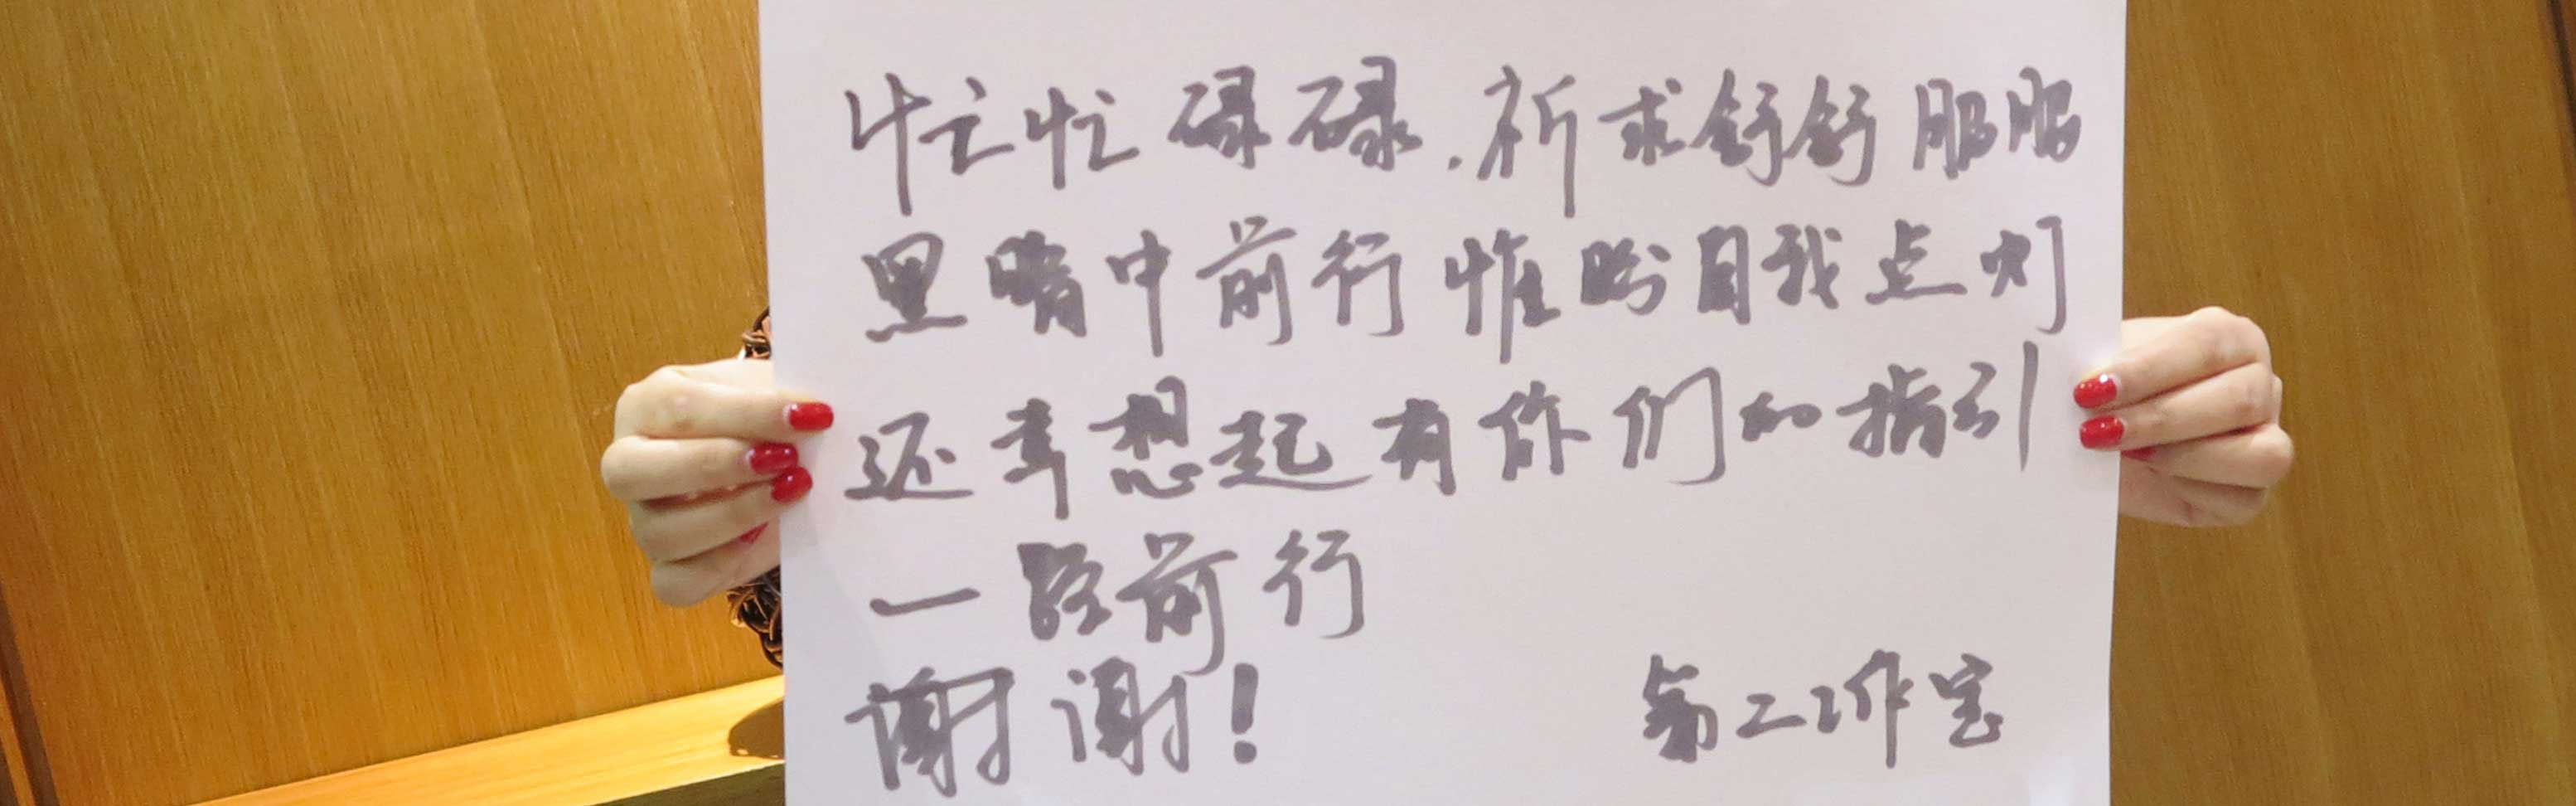 忙忙碌碌.祈求舒舒服服
黑暗中前行惟盼自我点灯
还幸想起有你们的指引
一路前行
谢谢!
第二工作室